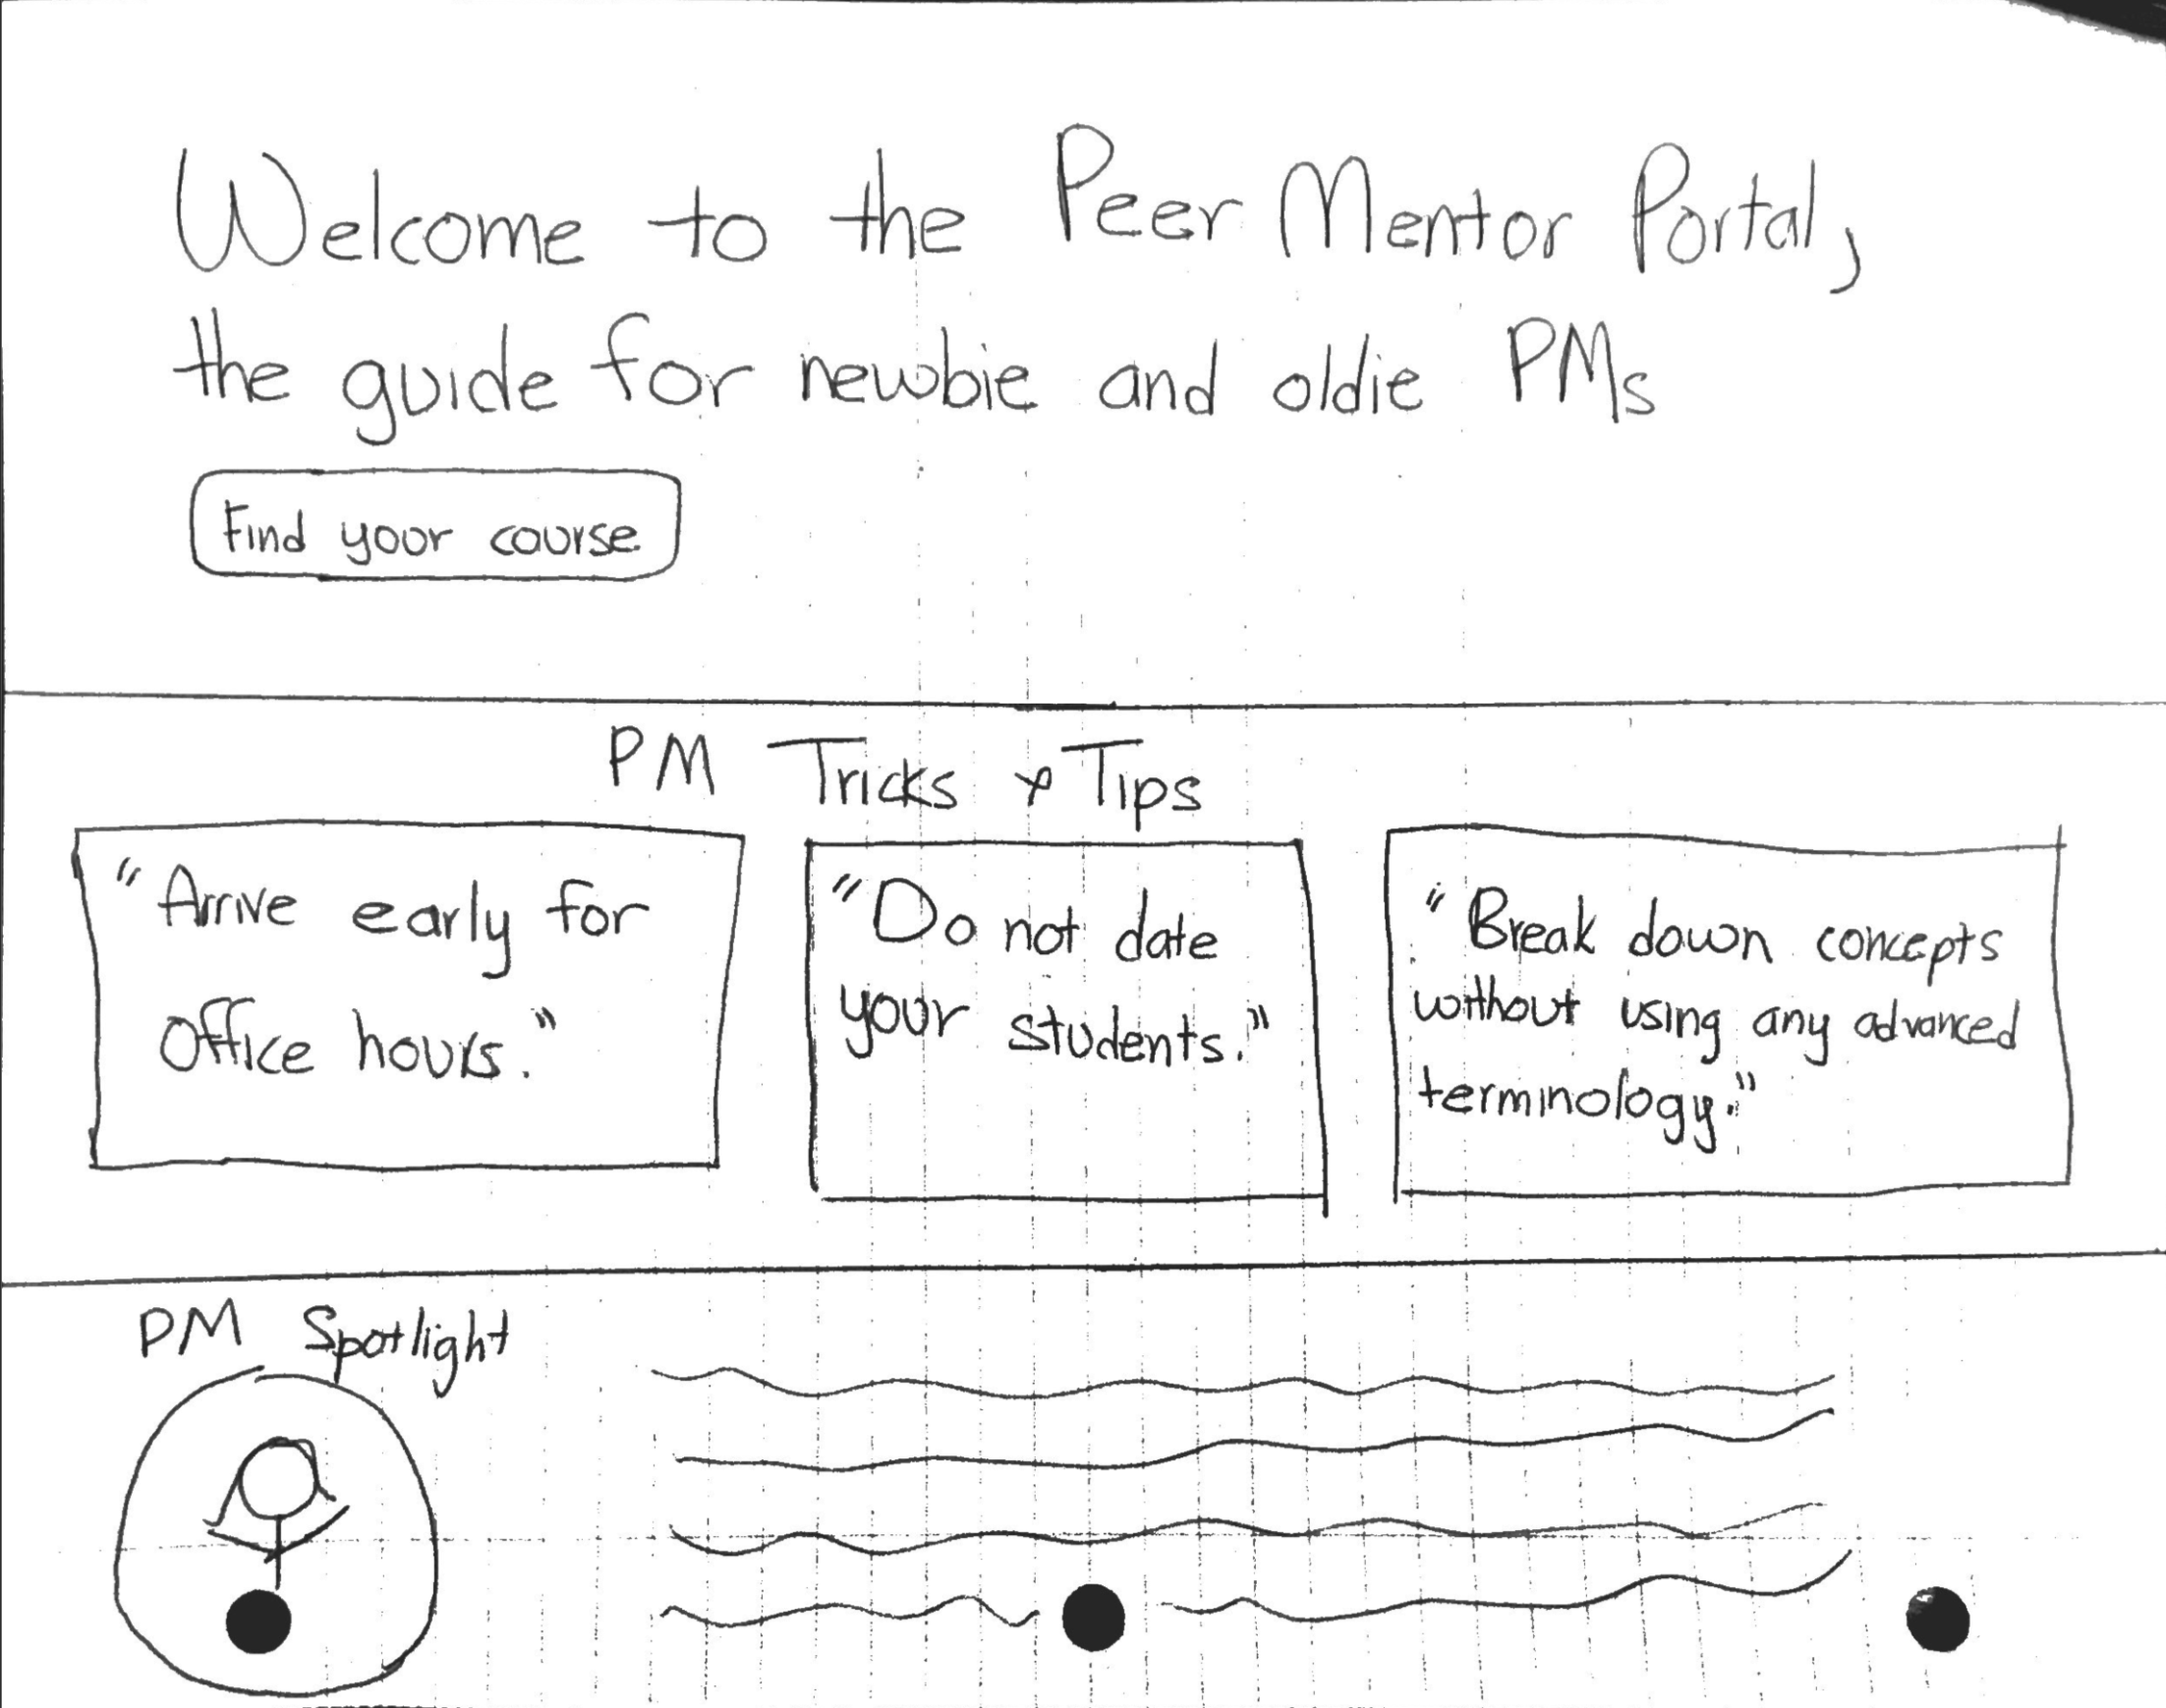 Welcome to the Peer Mentor Portal,
the guide for newbie and oldie PMs
Find your course
PM Tricks & Tips
"Arrive early for
office hours."
"Do not date
your students."
"Break down concepts
without using any advanced
terminology."
PM Spotlight